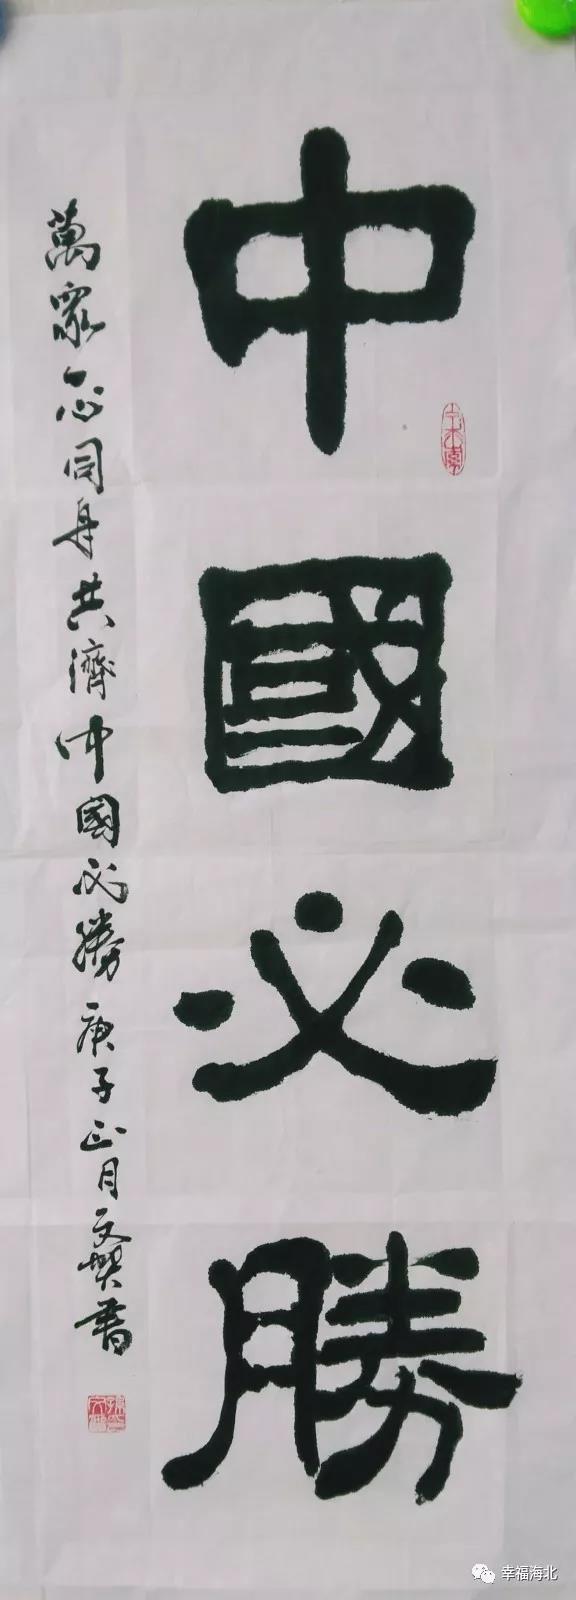 中國必勝
萬眾一心同舟共濟中國必勝庚子正月文樊書
幸福海北